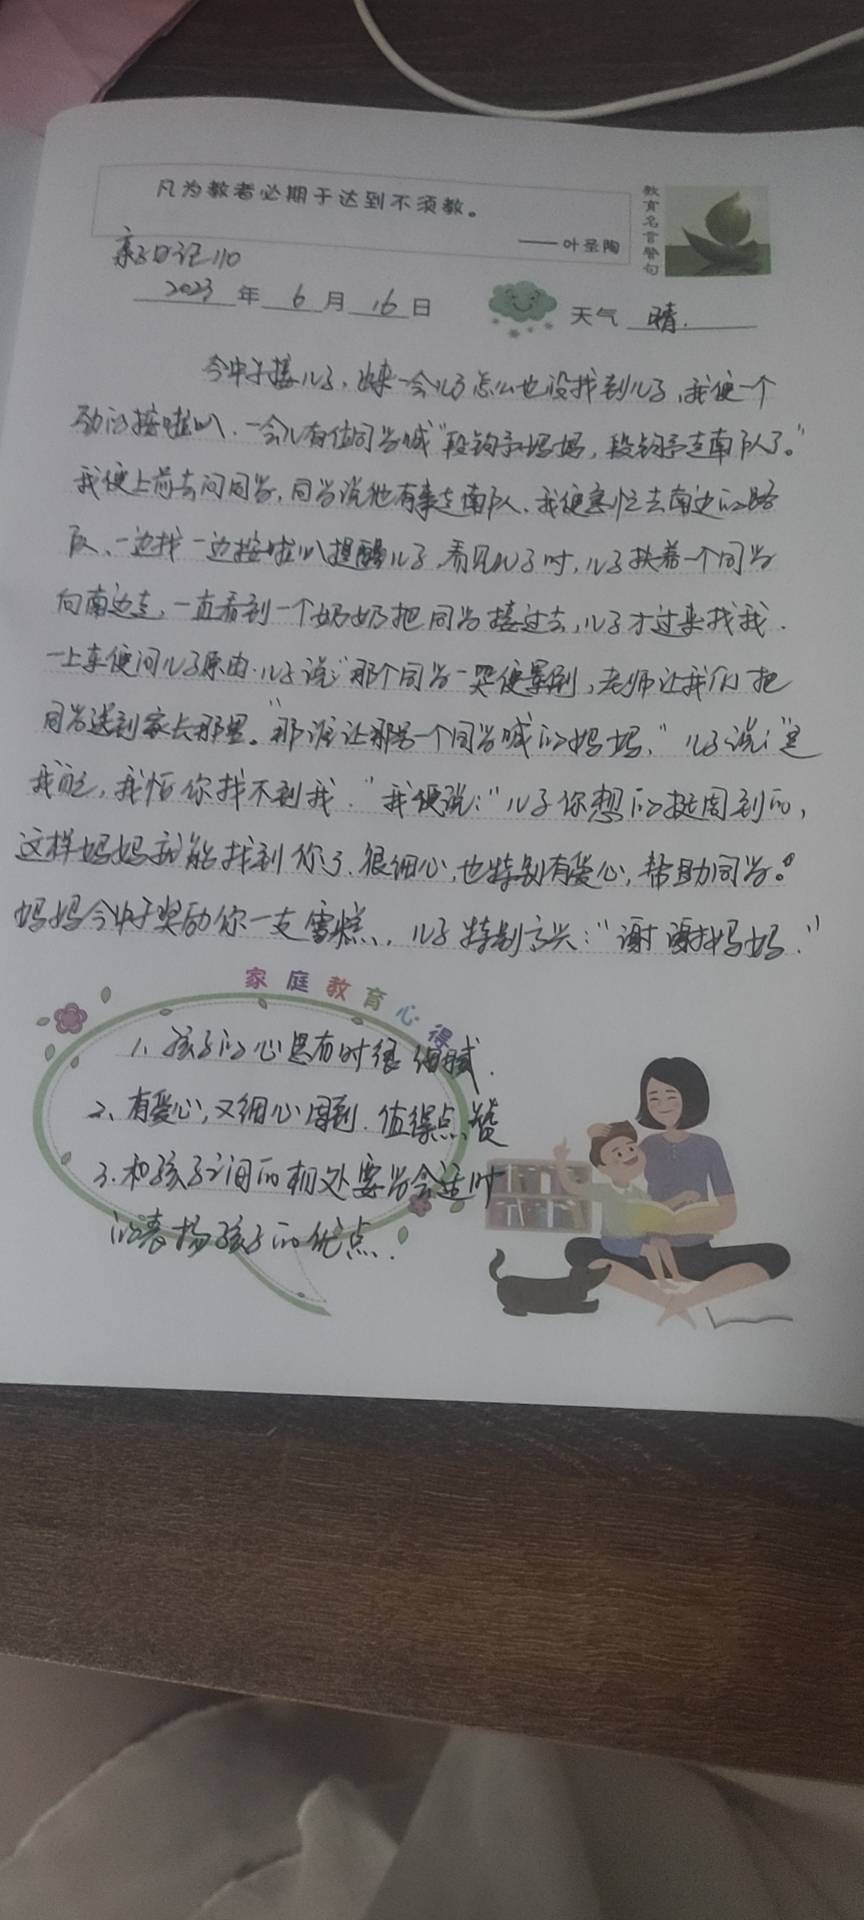 凡为教者必期于达到不须教。
——叶圣陶
教育名言警句
亲子日记110
2023年6月16日
天气 晴.
今中午接儿子,出来一会儿了怎么也没找到儿子,我便一个
劲的按喇叭.一会儿有位同学喊"段钧予妈妈,段钧予走南队了。"
我便上前去问同学,同学说他有事走南队.我便急忙去南边的路
队、一边找一边按喇叭提醒儿子,看见儿子时,儿子扶着一个同学
向南边走,一直看到一个奶奶把同学接过去,儿子才过来找我.
一上车便问儿子原由.儿子说:"那个同学一哭便晕倒,老师让我们把
同学送到家长那里。"那谁让那另一个同学喊的妈妈,"儿子说:"是
我呢,我怕你找不到我."我便说:"儿子你想的挺周到的,
这样妈妈就能找到你了.很细心,也特别有爱心,帮助同学。
妈妈今中午奖励你一支雪糕、,儿子特别高兴:"谢谢妈妈."
家庭教育心得
1、孩子的心思有时很细腻.
2、有爱心,又细心周到.值得点赞
3.和孩子之间的相处要学会适时
的表扬孩子的优点.